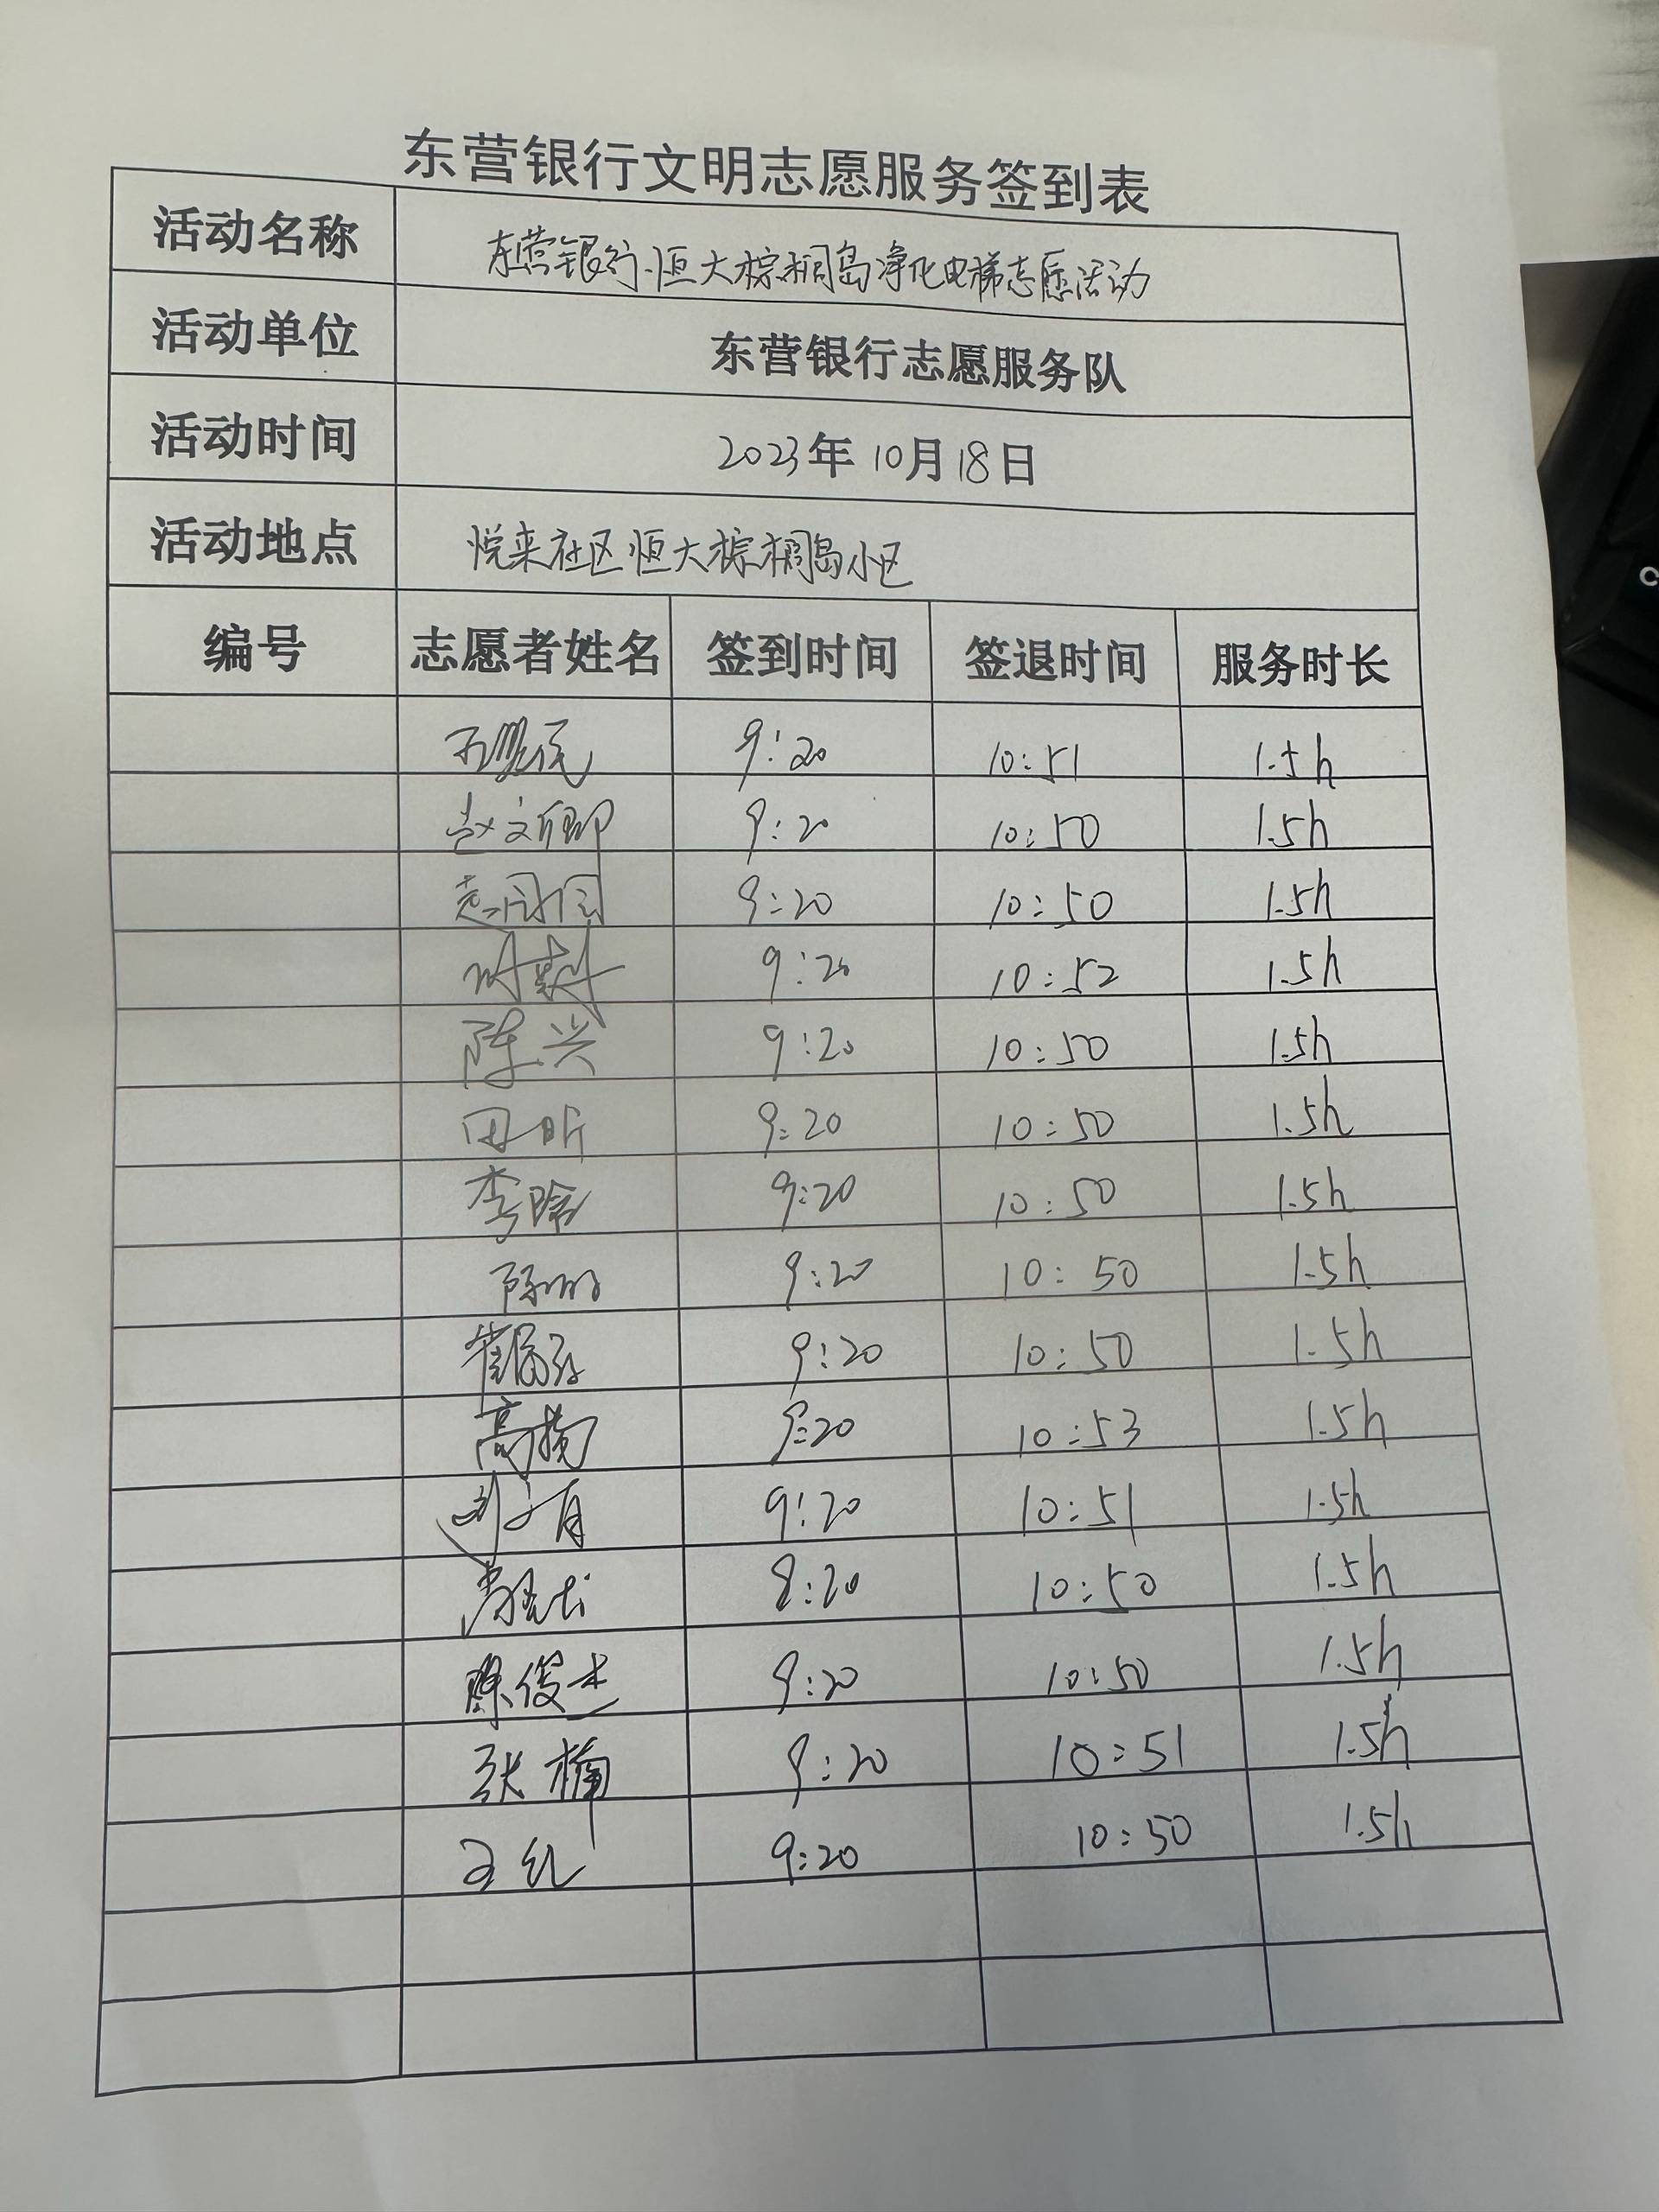 东营银行文明志愿服务签到表
活动名称 东营银行·恒大棕榈岛净化电梯志愿活动
活动单位 东营银行志愿服务队
活动时间 2023年10月18日
活动地点 悦来社区恒大棕榈岛小区
编号 志愿者姓名 签到时间 签退时间 服务时长
9:20 10:51 1.5h
赵文卿 9:20 10:50 1.5h
9:20 10:50 1.5h
9:20 10:52 1.5h
陈兴 9:20 10:50 1.5h
田昕 9:20 10:50 1.5h
李晗 9:20 10:50 1.5h
9:20 10:50 1.5h
9:20 10:50 1.5h
高杨 9:20 10:53 1.5h
9:20 10:51 1.5h
10:50 1.5h
陈俊杰 9:20 10:50 1.5h
张楠 9:20 10:51 1.5h
王红 9:20 10:50 1.5h